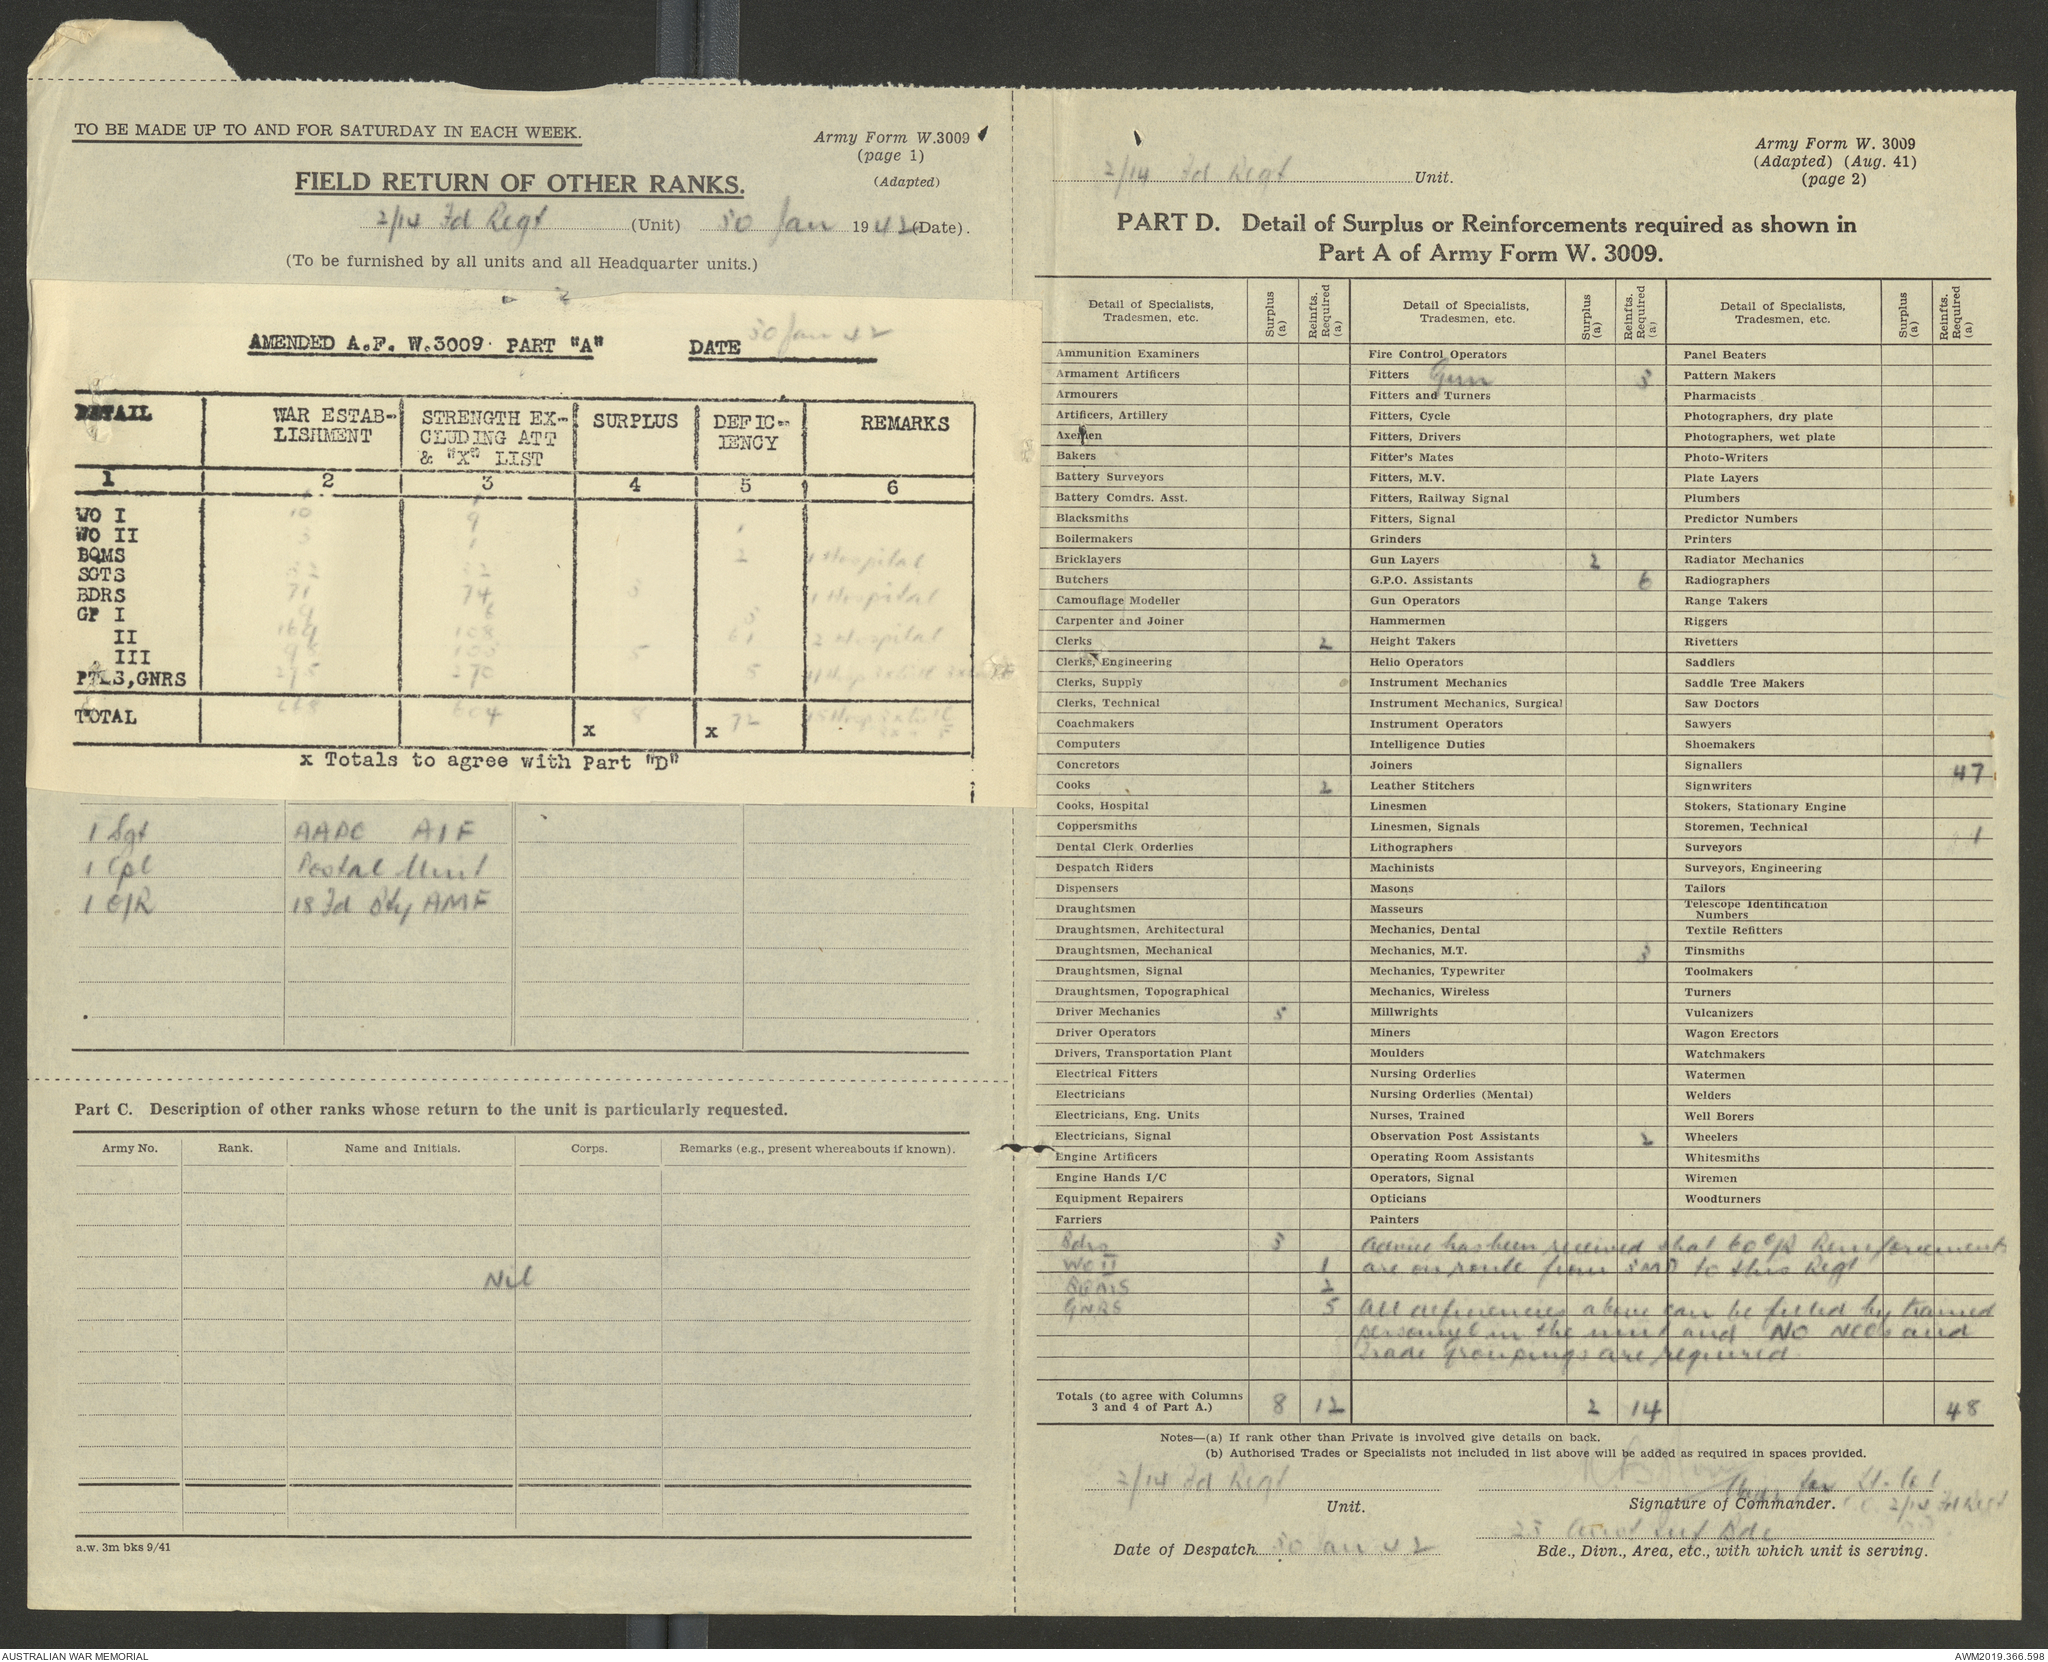 TO BE MADE UP TO AND FOR SATURDAY IN EACH WEEK.
Army Form W.3009
(page 1)
(Adapted)
FIELD RETURN OF OTHER RANKS.
2/14 Fd Regt (Unit) 30 Jan 1942 (Date).
(To be furnished by all units and all Headquarter units.)
AMENDED A.F. W.3009. PART "A" DATE 30 Jan 42
DETAIL | WAR ESTAB-LISHMENT | STRENGTH EX-CLUDING ATT & "X" LIST | SURPLUS | DEFIC-IENCY | REMARKS
1 2 3 4 5 6
WO I
WO II 10 9 1
BQMS 3 1 2 1 Hospital
SGTS 32 32
BDRS 71 74 3 1 Hospital
GP I 9 6 3
II 169 108 61 2 Hospital
III 98 103 5
PTES,GNRS 275 270 5
TOTAL 668 604 x 8 x 72
x Totals to agree with Part "D"
1 Sgt AAPC AIF
1 Cpl Postal Unit
1 O/R 18 Fd Bty AMF
Part C. Description of other ranks whose return to the unit is particularly requested.
Army No. Rank. Name and Initials. Corps. Remarks (e.g., present whereabouts if known).
Nil
a.w. 3m bks 9/41
Army Form W. 3009
(Adapted) (Aug. 41)
(page 2)
2/14 Fd Regt Unit.
PART D. Detail of Surplus or Reinforcements required as shown in
Part A of Army Form W. 3009.
Detail of Specialists, Tradesmen, etc. | Surplus (a) | Reinfts. Required (a)
Ammunition Examiners
Armament Artificers
Armourers
Artificers, Artillery
Axemen
Bakers
Battery Surveyors
Battery Comdrs. Asst.
Blacksmiths
Boilermakers
Bricklayers
Butchers
Camouflage Modeller
Carpenter and Joiner
Clerks 2
Clerks, Engineering
Clerks, Supply
Clerks, Technical
Coachmakers
Computers
Concretors
Cooks 2
Cooks, Hospital
Coppersmiths
Dental Clerk Orderlies
Despatch Riders
Dispensers
Draughtsmen
Draughtsmen, Architectural
Draughtsmen, Mechanical
Draughtsmen, Signal
Draughtsmen, Topographical
Driver Mechanics 5
Driver Operators
Drivers, Transportation Plant
Electrical Fitters
Electricians
Electricians, Eng. Units
Electricians, Signal
Engine Artificers
Engine Hands I/C
Equipment Repairers
Farriers
Bdrs 3
WO II 1
BQMS 2
GNRS 5
Totals (to agree with Columns 3 and 4 of Part A.) 8 12
Detail of Specialists, Tradesmen, etc. | Surplus (a) | Reinfts. Required (a)
Fire Control Operators
Fitters Gun 3
Fitters and Turners
Fitters, Cycle
Fitters, Drivers
Fitter's Mates
Fitters, M.V.
Fitters, Railway Signal
Fitters, Signal
Grinders
Gun Layers 2
G.P.O. Assistants 6
Gun Operators
Hammermen
Height Takers
Helio Operators
Instrument Mechanics
Instrument Mechanics, Surgical
Instrument Operators
Intelligence Duties
Joiners
Leather Stitchers
Linesmen
Linesmen, Signals
Lithographers
Machinists
Masons
Masseurs
Mechanics, Dental
Mechanics, M.T. 3
Mechanics, Typewriter
Mechanics, Wireless
Millwrights
Miners
Moulders
Nursing Orderlies
Nursing Orderlies (Mental)
Nurses, Trained
Observation Post Assistants 2
Operating Room Assistants
Operators, Signal
Opticians
Painters
Detail of Specialists, Tradesmen, etc. | Surplus (a) | Reinfts. Required (a)
Panel Beaters
Pattern Makers
Pharmacists
Photographers, dry plate
Photographers, wet plate
Photo-Writers
Plate Layers
Plumbers
Predictor Numbers
Printers
Radiator Mechanics
Radiographers
Range Takers
Riggers
Rivetters
Saddlers
Saddle Tree Makers
Saw Doctors
Sawyers
Shoemakers
Signallers 47
Signwriters
Stokers, Stationary Engine
Storemen, Technical 1
Surveyors
Surveyors, Engineering
Tailors
Telescope Identification Numbers
Textile Refitters
Tinsmiths
Toolmakers
Turners
Vulcanizers
Wagon Erectors
Watchmakers
Watermen
Welders
Well Borers
Wheelers
Whitesmiths
Wiremen
Woodturners
Advice has been received that 60 O/R Reinforcements
are on route from 3MD to this Regt
All deficiencies above can be filled by trained
personnel in the unit and NO NCOs and
Trade Groupings are required
2 14 48
Notes—(a) If rank other than Private is involved give details on back.
(b) Authorised Trades or Specialists not included in list above will be added as required in spaces provided.
2/14 Fd Regt
Unit.
Major for Lt-Col
Signature of Commander. C.O. 2/14 Fd Regt
Date of Despatch 30 Jan 42
23 Aust Inf Bde
Bde., Divn., Area, etc., with which unit is serving.
AUSTRALIAN WAR MEMORIAL
AWM2019.366.598